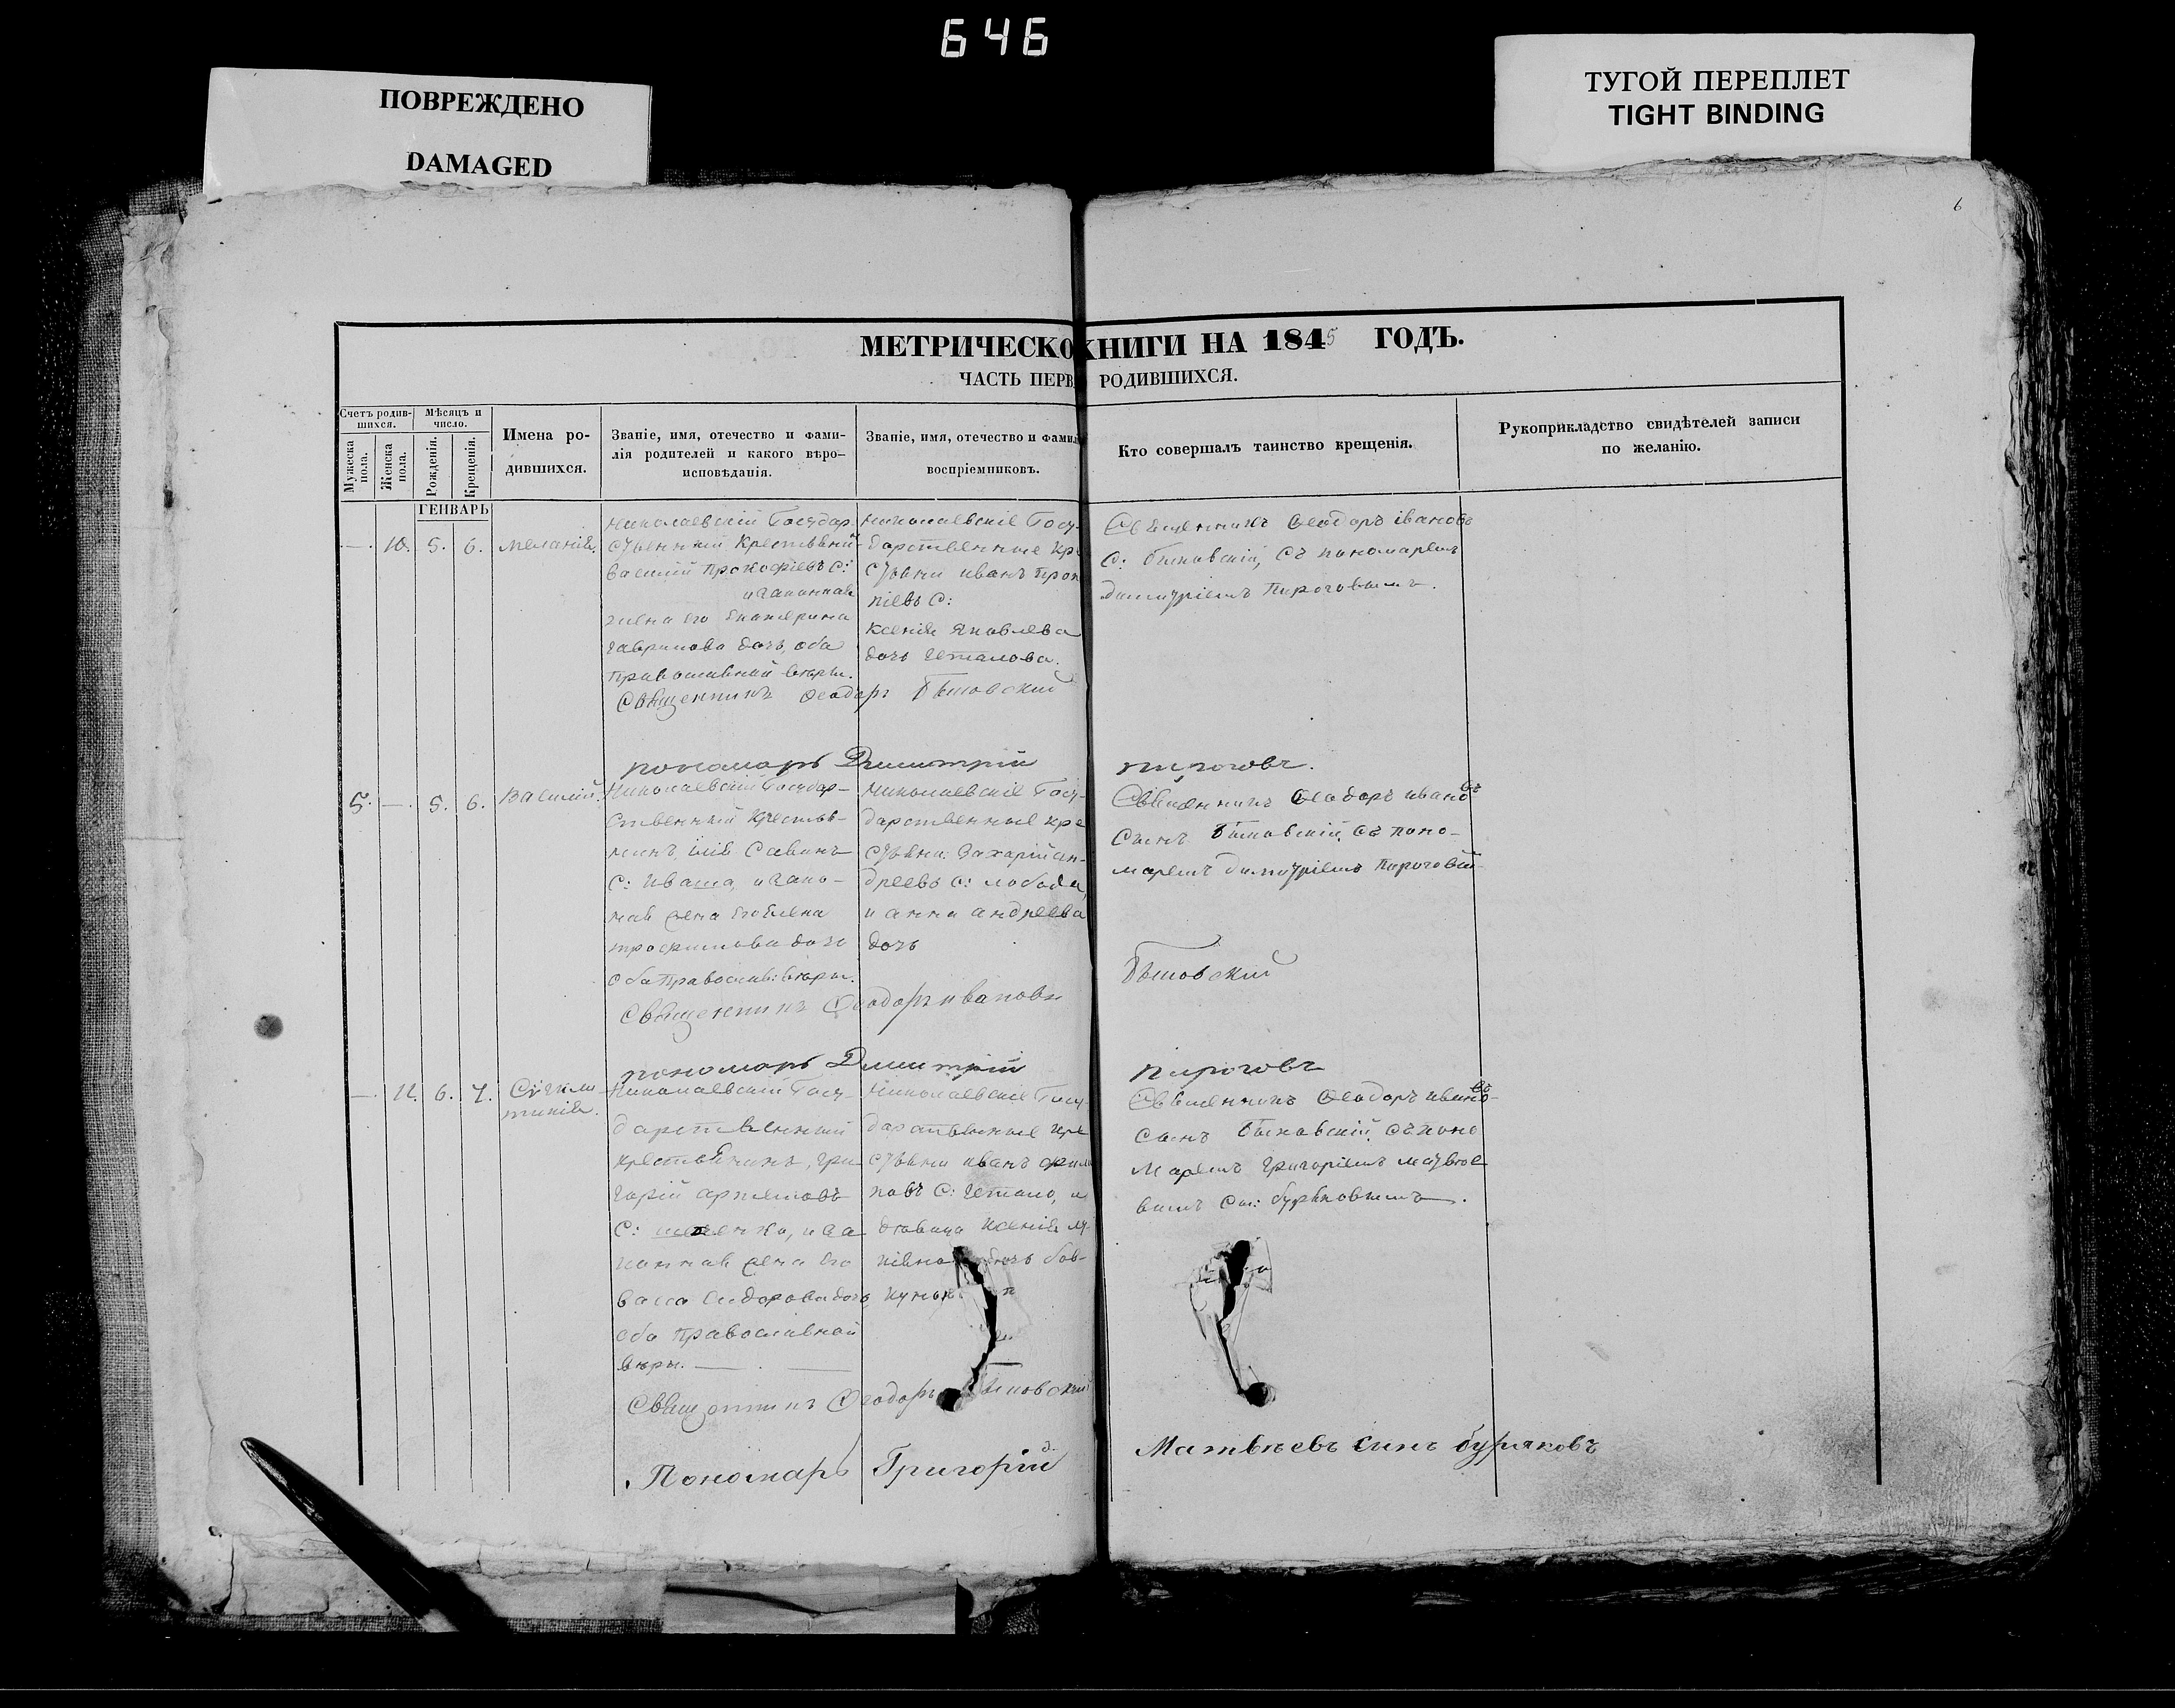 646
ПОВРЕЖДЕНО
DAMAGED
ТУГОЙ ПЕРЕПЛЕТ
TIGHT BINDING
6
МЕТРИЧЕСКО КНИГИ НА 1845 ГОДЪ.
ЧАСТЬ ПЕРВ РОДИВШИХСЯ.
Счетъ родив-
шихся.
Мужеска
пола.
Женска
пола.
Мѣсяцъ и
число.
Рожденія.
Крещенія.
Имена ро-
дившихся.
Званіе, имя, отечество и фами-
лія родителей и какого вѣро-
исповѣданія.
Званіе, имя, отечество и фамил
воспріемниковъ.
Кто совершалъ таинство крещенія.
Рукоприкладство свидѣтелей записи
по желанію.
ГЕНВАРЬ
—. 10. 5. 6. Меланія.
Николаевскій Государ-
ственный крестьянин
Василій Прокофіевъ С:
и законная
жена его Екатерина
Гаврилова дочь, оба
православной вѣры.
Николаевскіе Госу-
дарственные кре
стьяне иванъ Прок
піевъ С:
Ксенія Яковлева
дочь
Священникъ Ѳеодоръ івановъ
С: съ пономаремъ
димитріемъ Пироговымъ.
Священникъ Ѳеодоръ
пономарь Димитрій Пироговъ.
5. —. 5. 6. Василій.
Николаевскій Государ-
ственный крестья-
нинъ, Савинъ
С: Иваша, и зако-
ная жена его Елена
трофимова дочь
оба Православ: вѣры.
Николаевскіе Госу-
дарственные кре
стьяне: Захарій ан-
дреевъ С: лобода,
и анна андреева
дочь
Священникъ Ѳеодоръ ивановъ
Сынъ съ поно-
маремъ димитріемъ Пирогов
Священникъ Ѳеодоръ ивановъ
пономарь Димитрій Пироговъ
—. 11. 6. 7.
Николаевскій Госу-
дарственный
крестьянинъ, Гри
горій артемовъ
С: и за
конная жена его
Васса Сидорова дочь
оба Православной
вѣры.
Николаевскіе Госу-
дарственные кре
стьяне иванъ
повъ С: и
дѣвица Ксенія
дочь
Священникъ Ѳеодоръ ивановъ
сынъ съ поно
маремъ Григоріемъ матвѣе
вымъ Сы: буряковымъ.
Священникъ Ѳеодоръ
Пономарь Григорій Матвѣевъ Синъ буряковъ